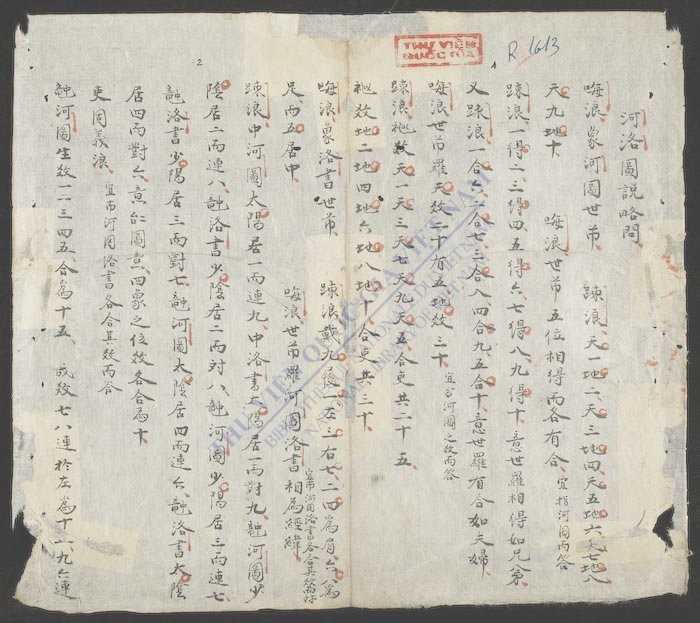 河洛圖說略問
嗨浪象河圖世芾 踈浪天一地二天三地四天五地六天七地八
天九地十 嗨浪世芾五位相得而各有合 宜指河圖而答
踈浪一得二三得四五得六七得八九得十意世羅相得如兄弟
又踈浪一合六二合七三合八四合九五合十意世羅有合如夫婦
嗨浪世芾羅天数二十有五地数三十 宜分河圖之数而答
踈浪極数天一天三天七天九天五合吏共二十五
極数地二地四地六地八地十合吏共三十
嗨浪象洛書世芾 踈浪戴九履一左三右七二四為肩六八為
足而五居中 嗨浪世芾羅河圖洛書相為經緯 河圖洛書各合其数而
踈浪中河圖太陽居一而連九中洛書太陽居一而對九融河圖少
陰居二而連八融洛書少陰居二而対八融河圖少陽居三而連七
融洛書少陽居三而對七融河圖太陰居四而連六融洛書太陰
居四而對六意仁圖意四象之位数各合為十
吏固義浪 宜河圖洛書各合其数而答
融河圖生数一二三四五合為十五 成数七八連於左為十五九六連
THƯ VIỆN QUỐC GIA
R.1613
2
THƯ VIỆN QUỐC GIA VIỆT NAM
BIBLIOTHÈQUE NATIONALE DU VIETNAM
NATIONAL LIBRARY OF VIETNAM